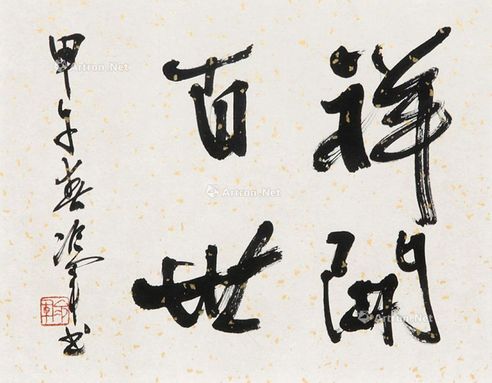 祥開
百世
甲午春书
Artron.Net
Artron.Net
Artron.Net